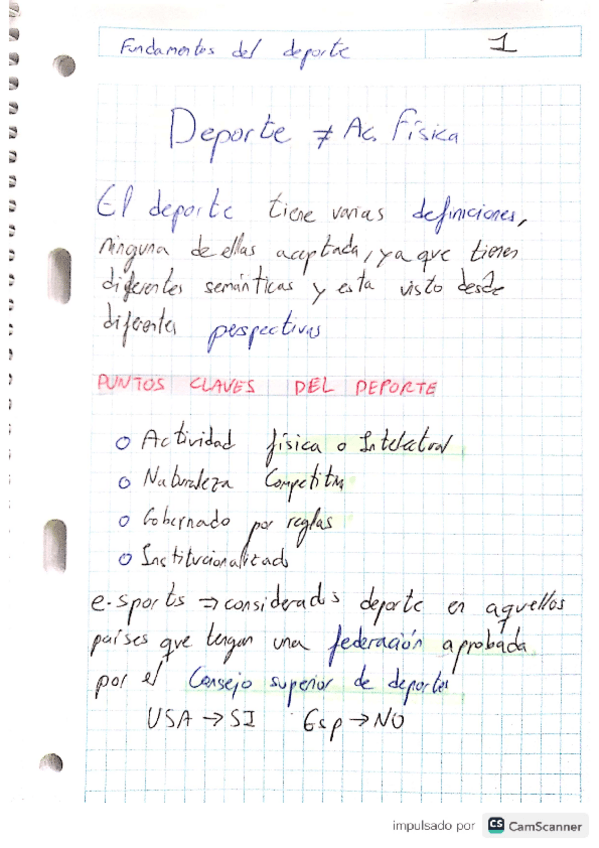 Fundamentos del deporte
1
Deporte ≠ Ac. Física
El deporte tiene varias definiciones,
ninguna de ellas aceptada, ya que tienen
diferentes semánticas y esta visto desde
diferentes perspectivas
PUNTOS CLAVES DEL DEPORTE
o Actividad física o Intelectual
o Naturaleza Competitiva
o Gobernado por reglas
o Institucionalizado
e-sports ⇒ considerados deporte en aquellos
países que tengan una federación aprobada
por el Consejo superior de deportes
USA → SI Esp → NO
impulsado por CS CamScanner